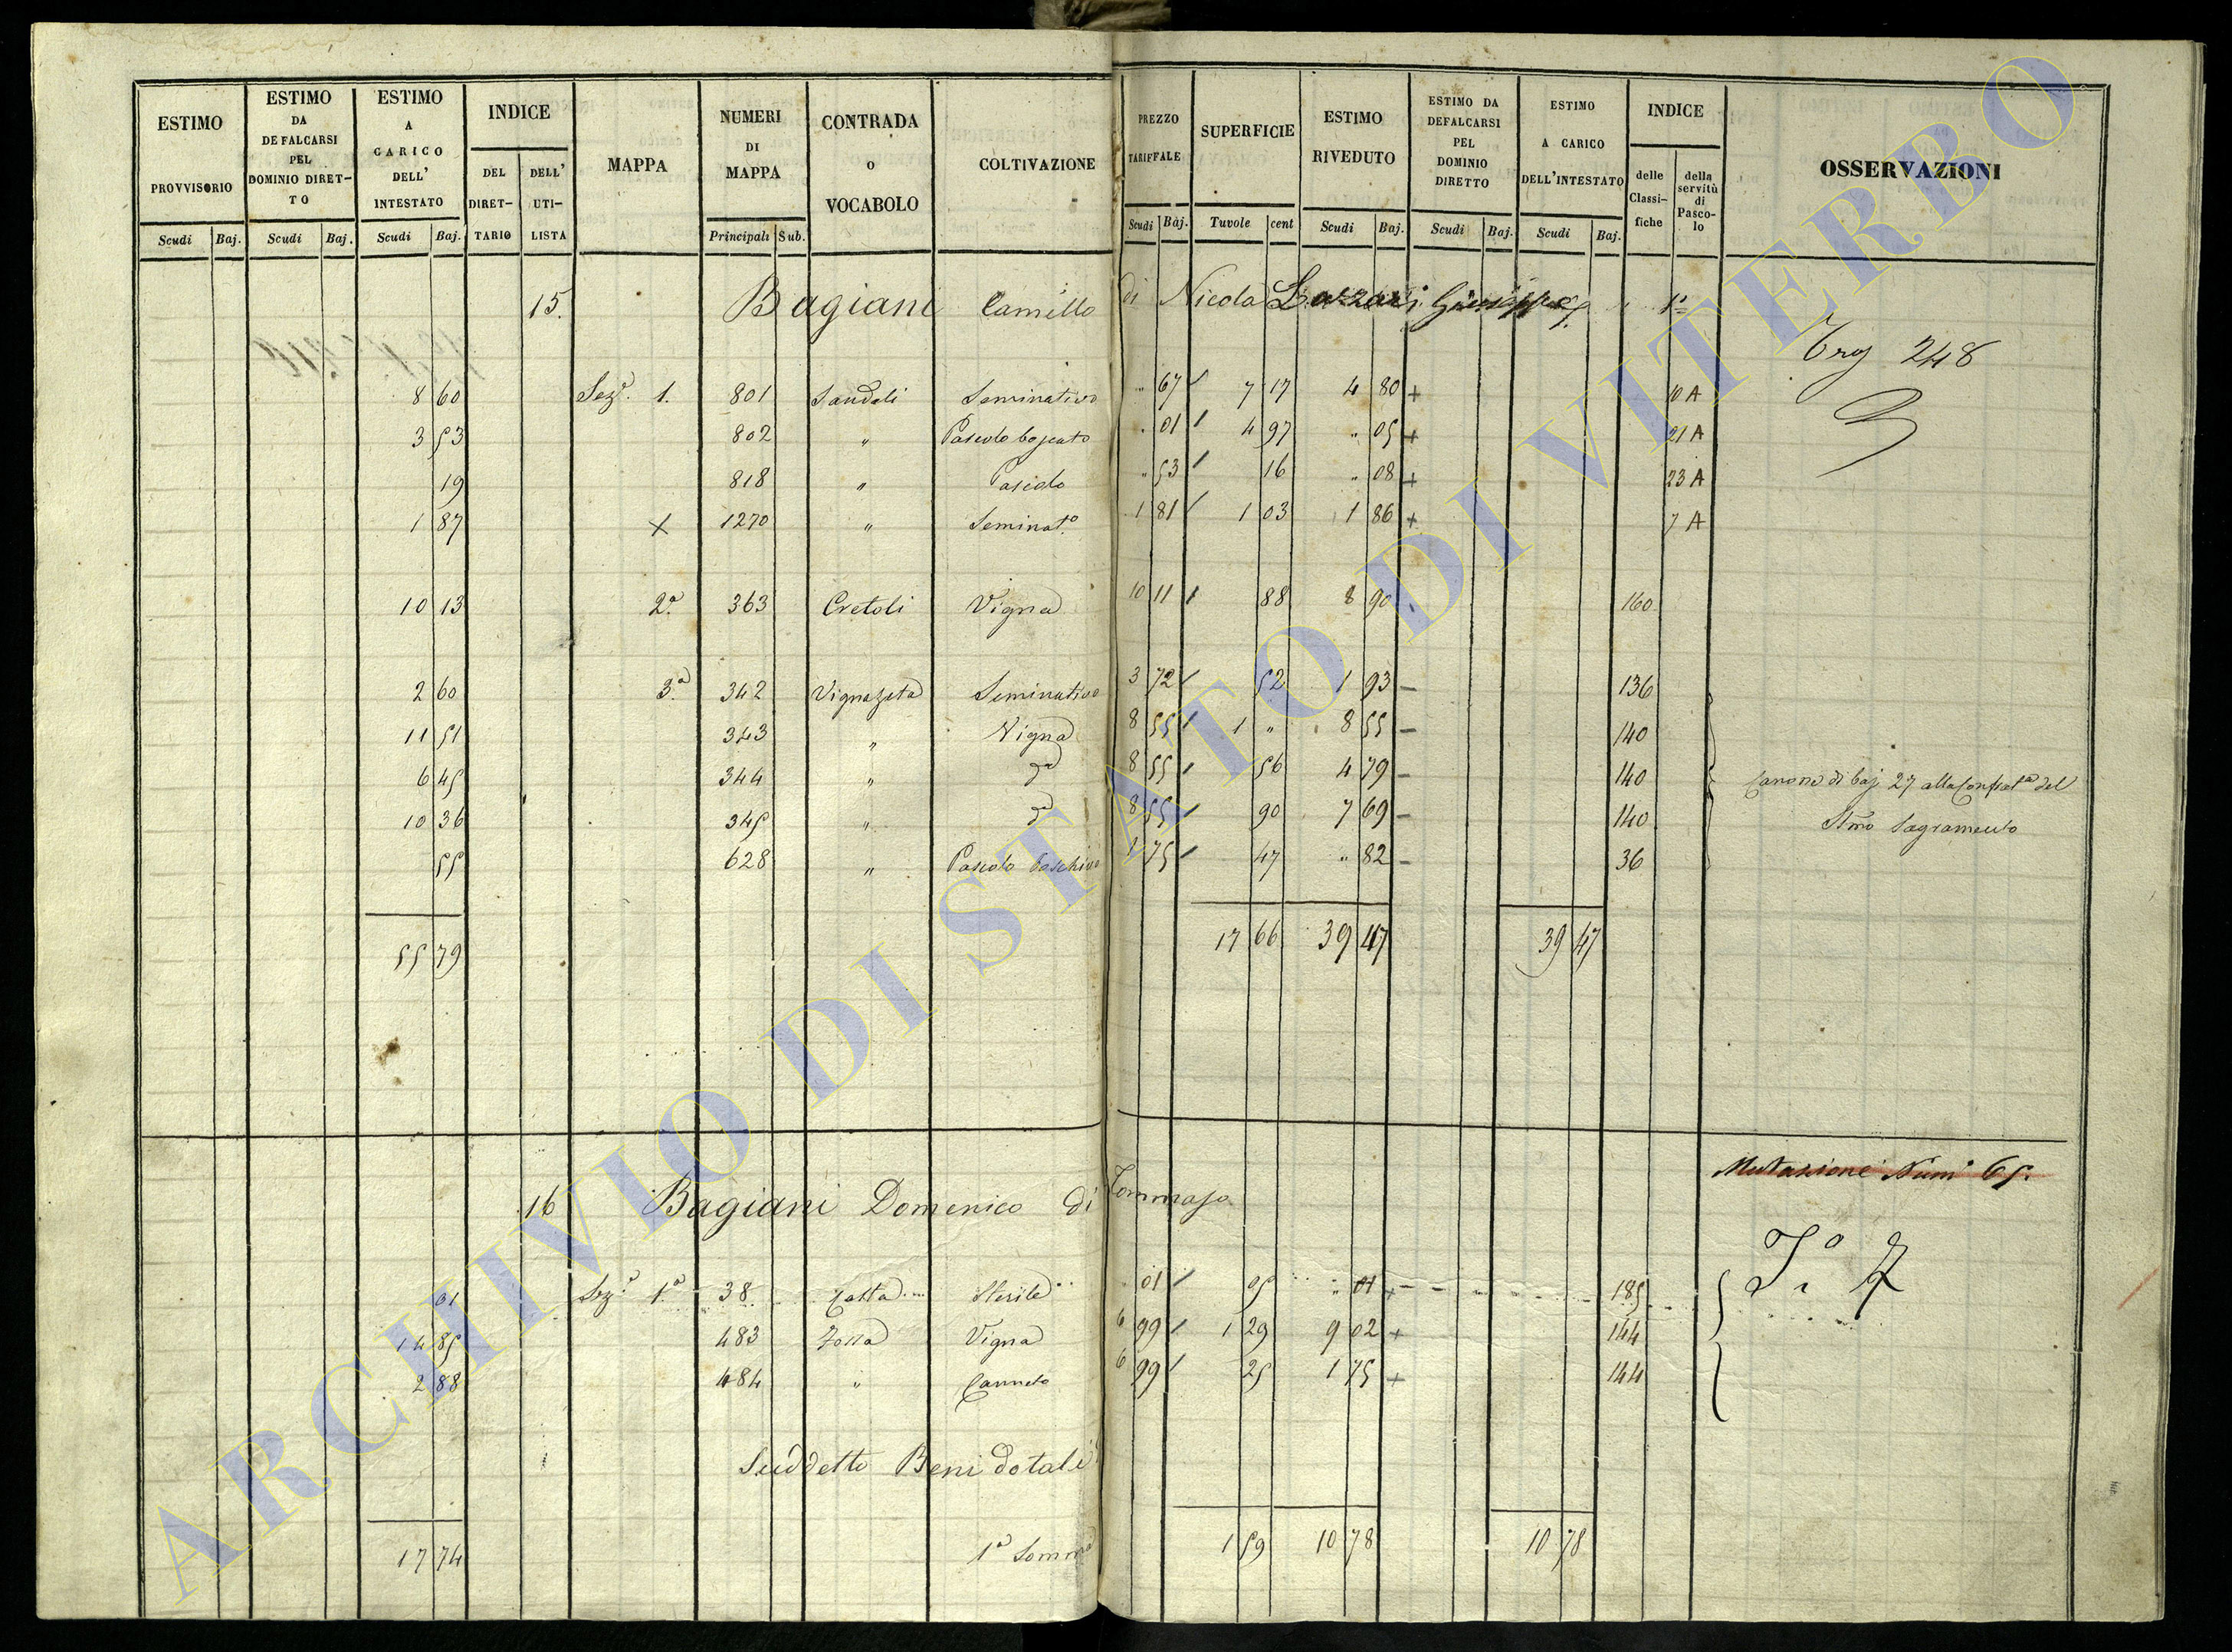 ESTIMO PROVVISORIO
Scudi Baj.
ESTIMO DA DEFALCARSI PEL DOMINIO DIRET-TO
Scudi Baj.
ESTIMO A CARICO DELL' INTESTATO
Scudi Baj.
INDICE
DEL DIRET-TARIO
DELL' UTI-LISTA
MAPPA
NUMERI DI MAPPA
Principali Sub.
CONTRADA o VOCABOLO
COLTIVAZIONE
PREZZO TARIFFALE
Scudi Baj.
SUPERFICIE
Tuvole cent
ESTIMO RIVEDUTO
Scudi Baj.
ESTIMO DA DEFALCARSI PEL DOMINIO DIRETTO
Scudi Baj.
ESTIMO A CARICO DELL'INTESTATO
Scudi Baj.
INDICE
delle Classi-fiche
della servitù di Pasco-lo
OSSERVAZIONI
15. Bagiani Camillo di Nicola Lazzari Giuseppe 1°
248
8 60 Sez.e 1. 801 Sandali Seminativo " 67 7 17 4 80 + 10 A
3 53 802 " Pascolo boscato " 01 4 97 " 05 + 21 A
19 818 " Pascolo " 53 16 " 08 + 23 A
1 87 X 1270 " Seminat.o 1 81 1 03 1 86 + 7 A
10 13 2.a 363 Cretoli Vigna 10 11 88 8 90 160
2 60 3.a 342 Vignazeta Seminativo 3 72 52 1 93 – 136
11 51 343 " Vigna 8 55 1 " 8 55 – 140
6 45 344 " d.a 8 55 56 4 79 – 140
Canone di baj 27 alla Confrat.a del
10 36 345 " d.a 8 55 90 7 69 – 140
SSmo Sagramento
55 628 " Pascolo boschivo 1 75 47 " 82 – 36
55 79 17 66 39 47 39 47
Mutazione Num° 65.
16 Bagiani Domenico di Tommaso
01 Sez.e 1.a 38 Costa Sterile " 01 05 " 01 + 185
14 85 483 Fossa Vigna 6 99 1 29 9 02 + 144
2 88 484 " Canneto 6 99 25 1 75 + 144
Suddetto Beni dotali
17 74 1a Somma 1 59 10 78 10 78
ARCHIVIO DI STATO DI VITERBO